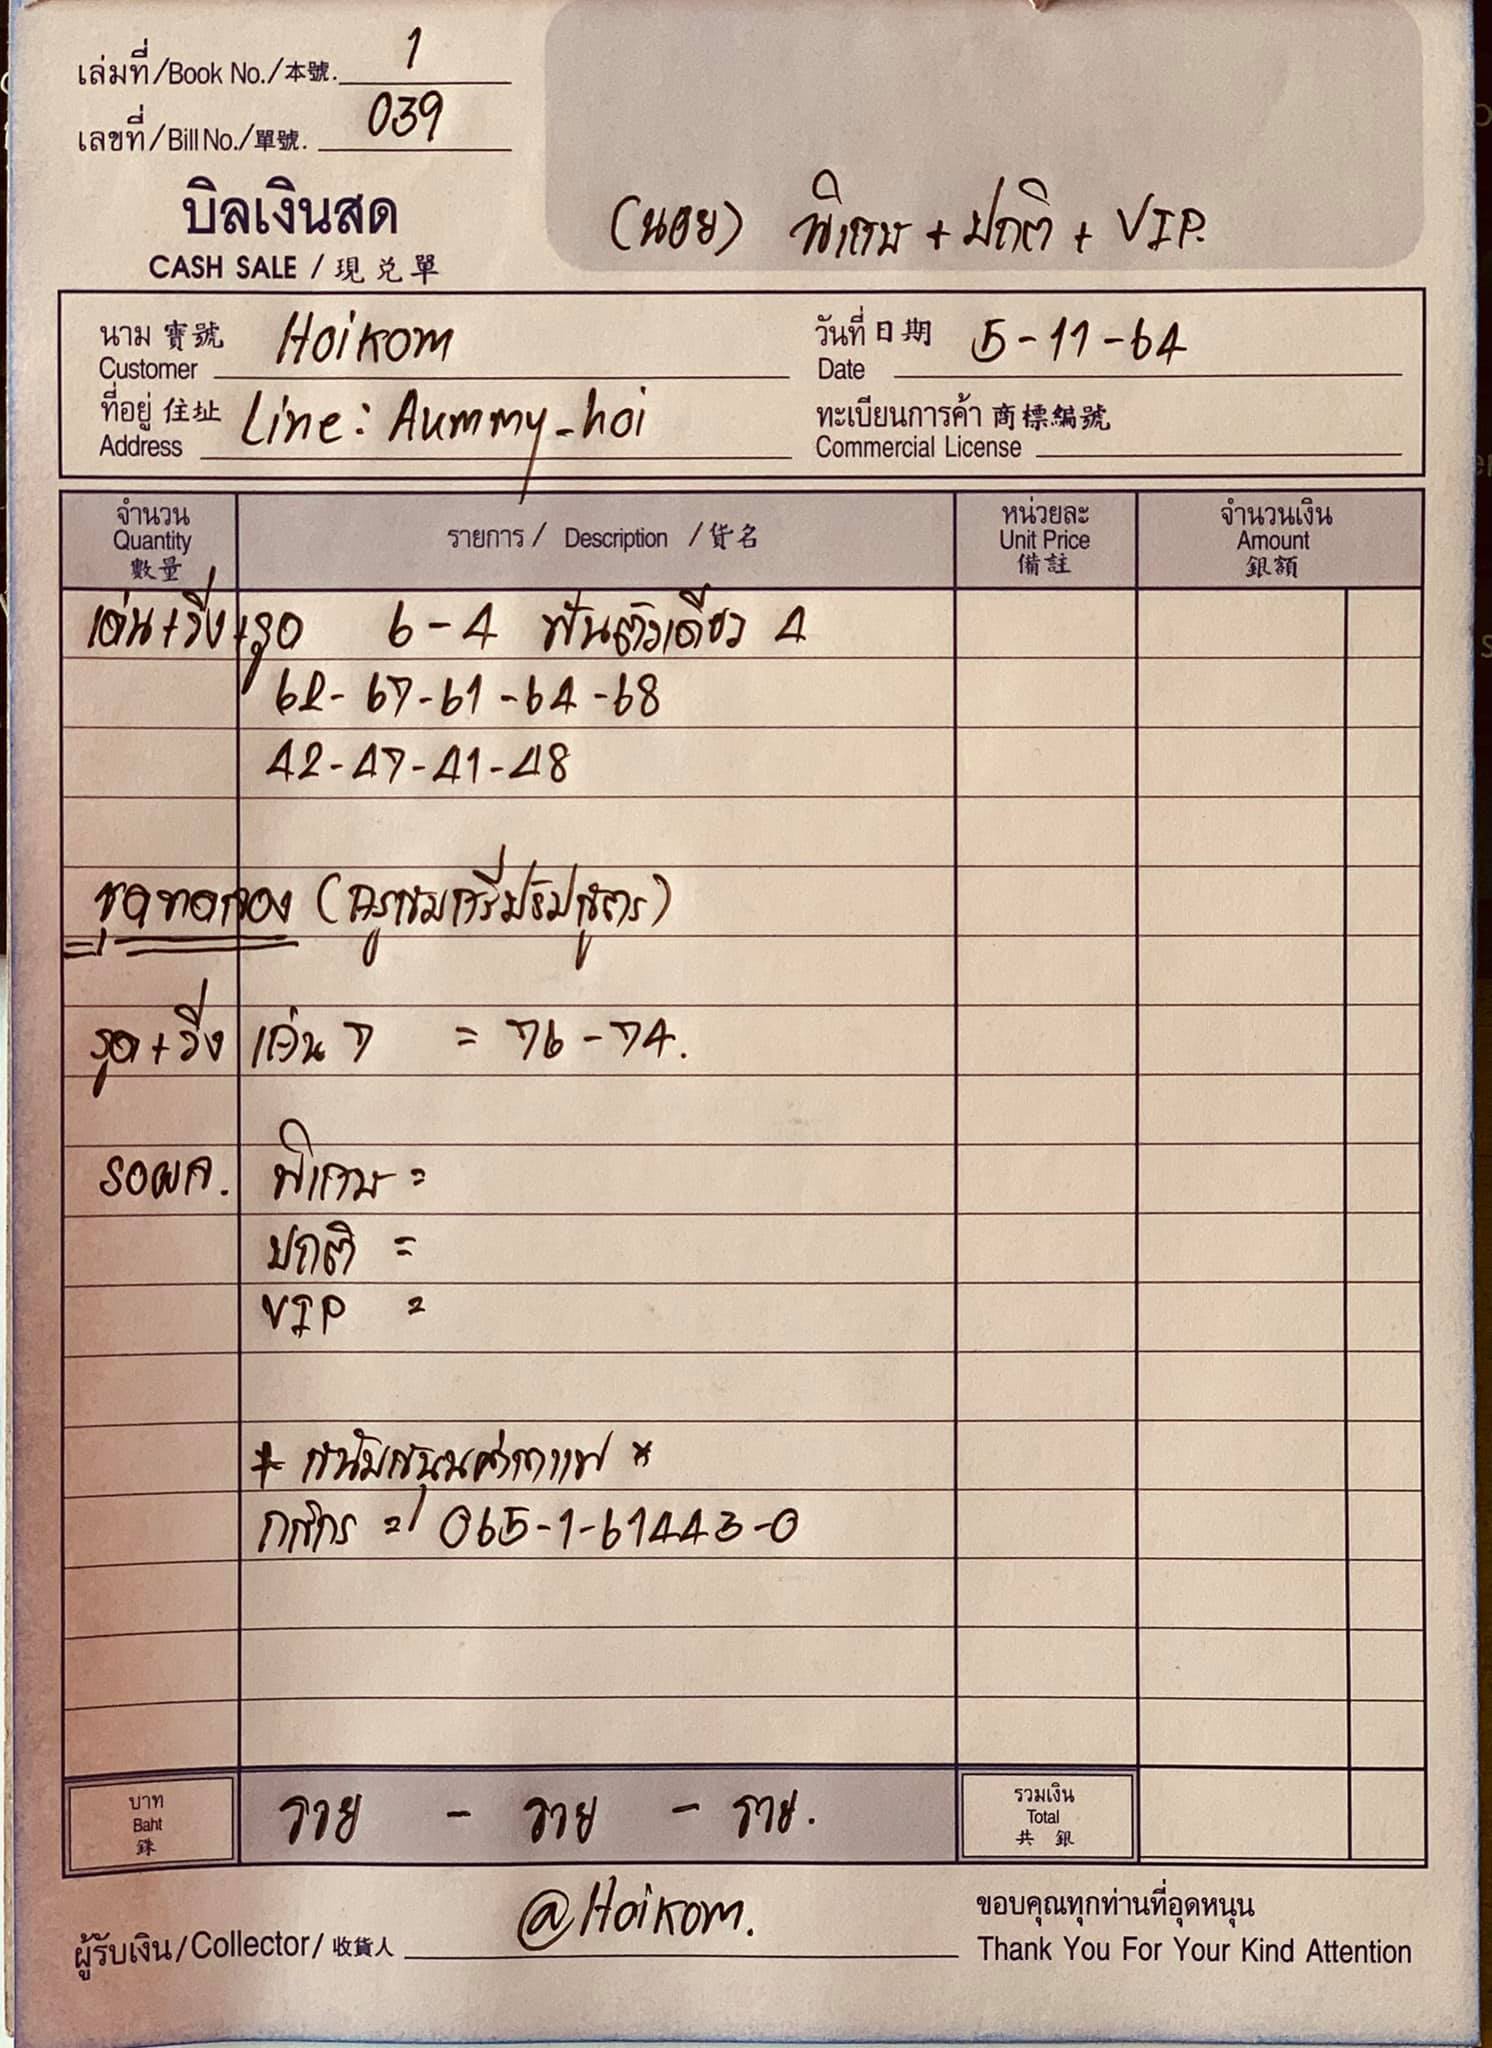 เล่มที่/Book No./本號. 1
เลขที่/Bill No./單號. 039
บิลเงินสด
CASH SALE / 現兌單
(นอย) พิเศษ + ปกติ + VIP.
นาม 寶號 Customer Hoikom
วันที่ 日期 Date 5-11-64
ที่อยู่ 住址 Address Line: Aummy_hoi
ทะเบียนการค้า 商標編號 Commercial License
จำนวน Quantity 數量
รายการ / Description / 貨名
หน่วยละ Unit Price 備註
จำนวนเงิน Amount 銀額
เด่น+วิ่ง+รูด 6-4 ฟันตัวเดียว 4
62-67-61-64-68
42-47-41-48
ชุดทดลอง
รูด+วิ่ง เด่น 7 = 76-74.
รอผล. พิเศษ =
ปกติ =
VIP =
* สนับสนุนค่ากาแฟ *
กสิกร = 065-1-61443-0
บาท Baht 銖
รวย - รวย - รวย.
รวมเงิน Total 共 銀
@Hoikom.
ผู้รับเงิน/Collector/收貨人
ขอบคุณทุกท่านที่อุดหนุน
Thank You For Your Kind Attention